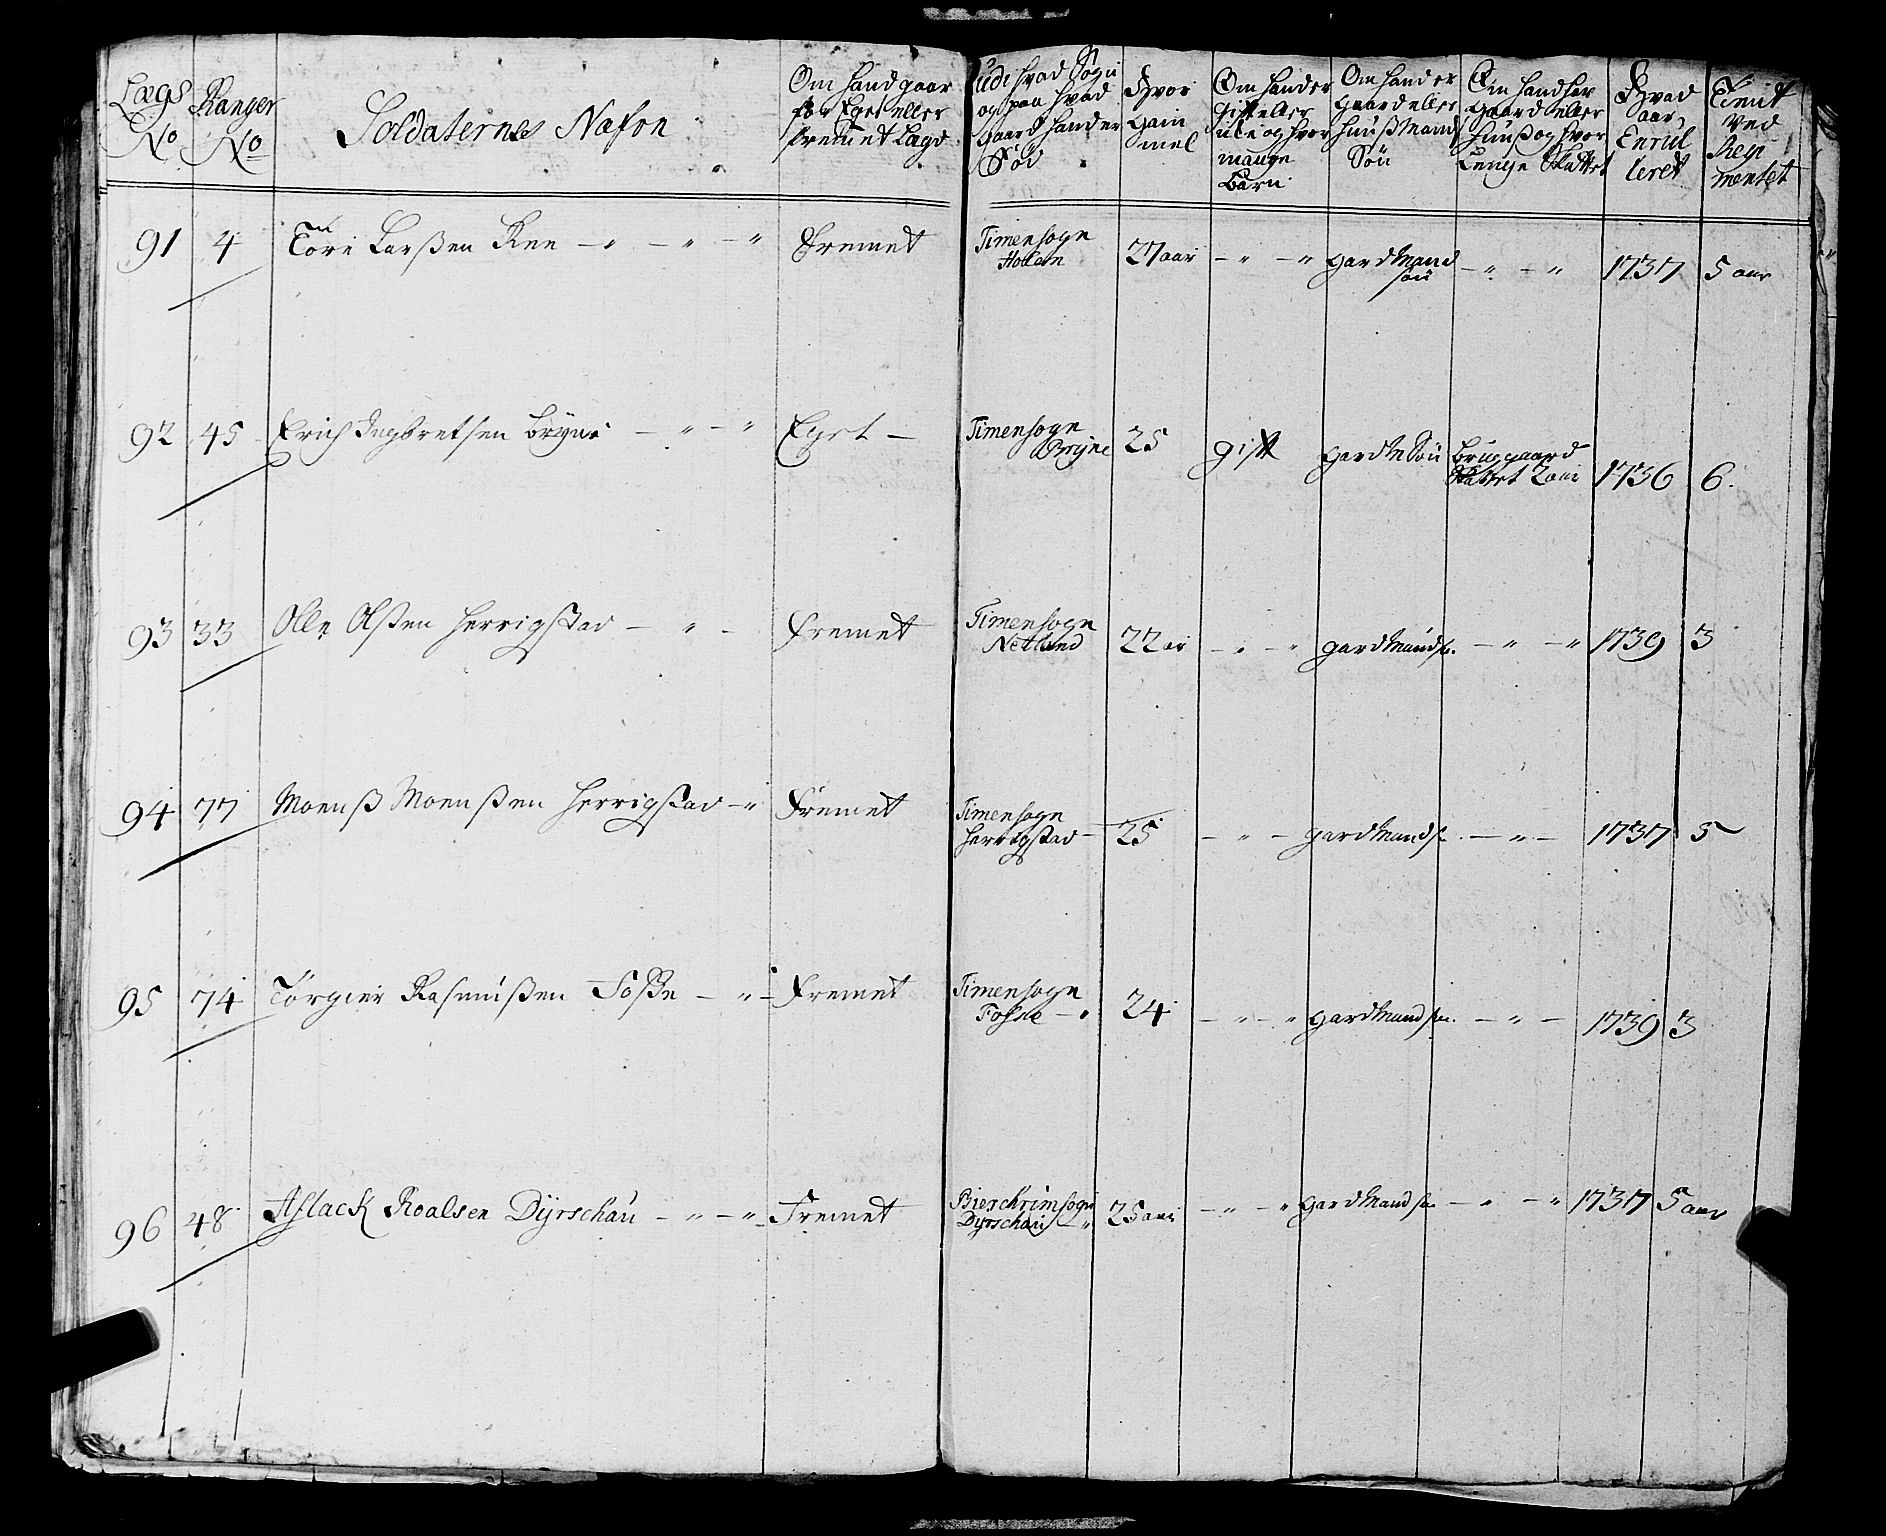 Lægs No
Ranger No
Soldaternes Nafn
Om hand gaar for Eget eller fremet Lægd
udi hvad Sogn og paa hvad gaard hand er Fød
Hvor Gam mel
Om hand er gift eller ike og hvor mange Børn
Om hand er gaard eller huusMands Søn
Om hand har gaard eller huus og hvor Lenge Skattet
Hvad aar Enrul leret
Tient ved Regi mentet
91 4 Tore Larssen Ree — " — " — " Fremet Timensogn Holan 27 aar — " — " gard Mand søn — " — " 1737 5 aar
92 45 Erich Ingbretsen Bryne — " — " Eget — Timensogn Bryne 25 gift gardMSøn Bruggaard Skattet 2 aar 1736 6.
93 33 Olle Olssen Herrigstad — " — Fremet Timensogn Netland 22 ar — " — " gardMandsø. — " — " 1739 3
94 77 Moenss Moenssen Herrigstad — " Fremet Timensogn Herrigstad — 25 — " — gardMandsø. — " — 1737 5
95 74 Törgier Rasmussen Fosse — " — Fremet Timensogn Fosse — " 24 — " — " gardMandsøn. — " — 1739 3
96 48 Aslack Roalsen Dyrschau — " — " — Fremet Bierchrimsogn Dyrschau " 25 aar — " — " gardMandsøn — " — " 1737 5 aar